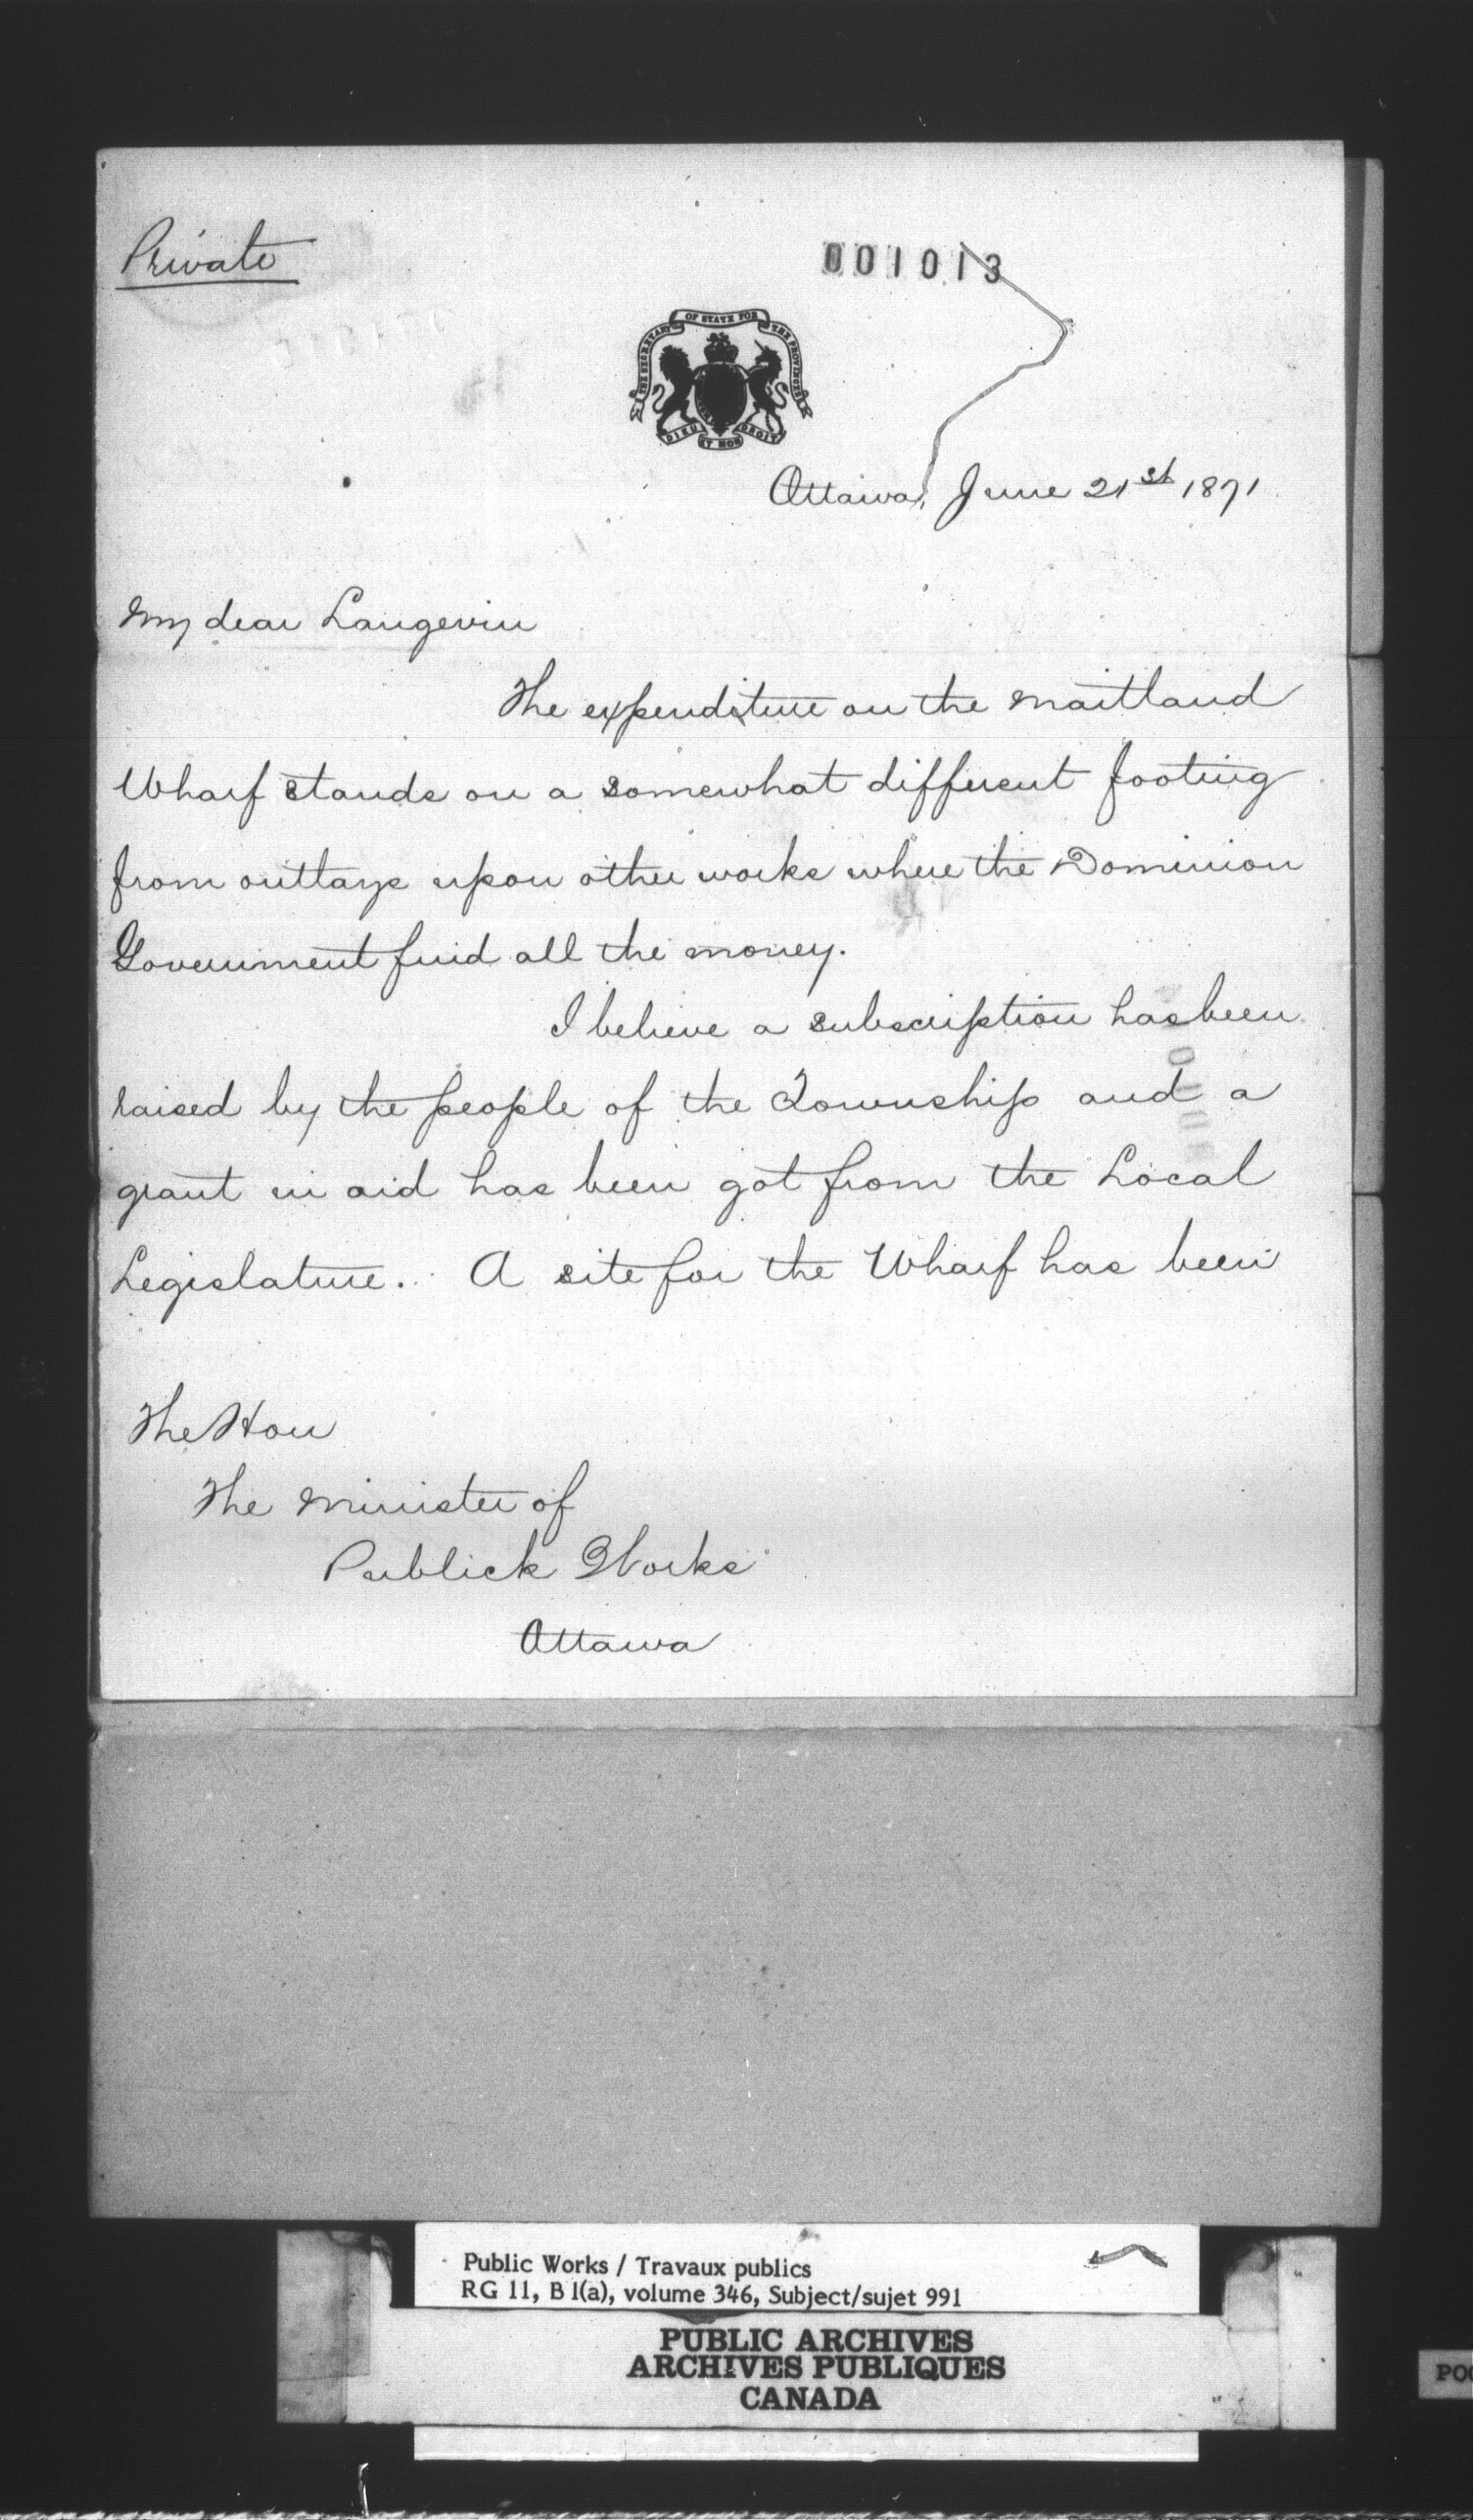 Private
001013
THE SECRETARY OF STATE FOR THE PROVINCES
DIEU ET MON DROIT
Ottawa, June 21st 1871
My dear Langevin
The expenditure on the Maitland
Wharf stands on a somewhat different footing
from outlays upon other works where the Dominion
Government find all the money.
I believe a subscription has been
raised by the people of the Township and a
grant in aid has been got from the Local
Legislature. A site for the Wharf has been
The Hon
The Minister of
Publick Works
Ottawa
Public Works / Travaux publics
RG 11, B 1(a), volume 346, Subject/sujet 991
PUBLIC ARCHIVES
ARCHIVES PUBLIQUES
CANADA